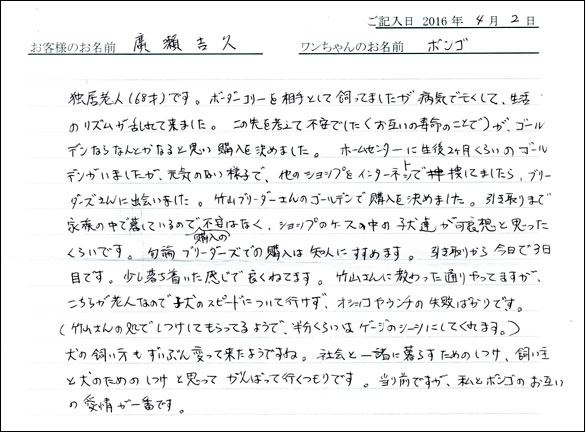 ご記入日 2016 年 4 月 2 日
お客様のお名前 廣瀬吉久 ワンちゃんのお名前 ボンゴ
独居老人(68才)です。ボーダーコリーを相手として飼ってましたが病気で亡くして、生活
のリズムが乱れて来ました。この先を考えて不安でした(お互いの寿命のことで)が、ゴール
デンならなんとかなると思い購入を決めました。ホームセンターに生後2ヶ月くらいのゴール
デンがいましたが、元気のない様子で、他のショップをインターネットで探してましたら、ブリー
ダーズさんに出会いました。竹山ブリーダーさんのゴールデンで購入を決めました。引き取りまで
家族の中で暮しているので購入の不安はなく、ショップのケースの中の子犬達が可哀想と思った
くらいです。勿論ブリーダーズでの購入は知人にすすめます。引き取りから今日で3日
目です。少し落ち着いた感じで良くねてます。竹山さんに教わった通りやってますが、
こちらが老人なので子犬のスピードについて行けず、オシッコやウンチの失敗ばかりです。
(竹山さんの処でしつけてもらってるようで、半分くらいはゲージのシーツにしてくれます。)
犬の飼い方もずいぶん変って来たようですね。社会と一緒に暮らすためのしつけ、飼い主
と犬のためのしつけと思ってがんばって行くつもりです。当り前ですが、私とボンゴのお互い
の愛情が一番です。